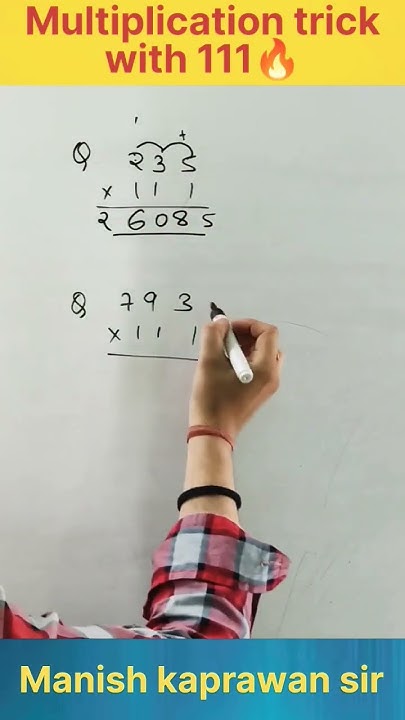 Multiplication trick
with 111🔥
+
Q 235
× 111
26085
Q 793
× 111
Manish kaprawan sir